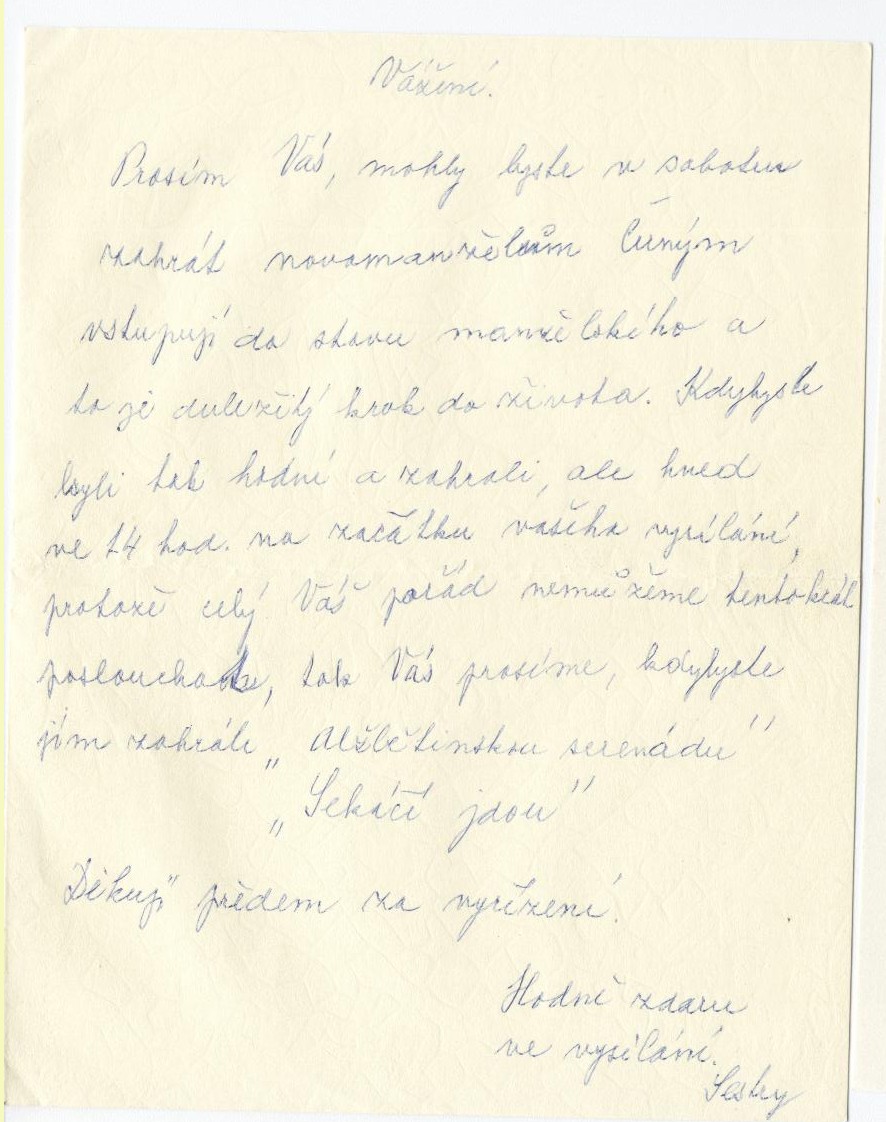 Vážení.
Prosím Vás, mohly byste v sobotu
zahrát novomanželům Čuným
vstupují do stavu manželského a
to je duležitý krok do života. Kdybyste
byli tak hodní a zahrali, ale hned
ve 14 hod. na začátku vašeho vysílání,
protože celý Váš pořád nemůžeme tentokrát
poslouchat, tak Vás prosíme, kdybyste
jím zahráli „Alžbětinskou serenádu"
„Sekáči jdou"
Děkuji předem za vyřízení.
Hodně zdaru
ve vysílání.
Sestry